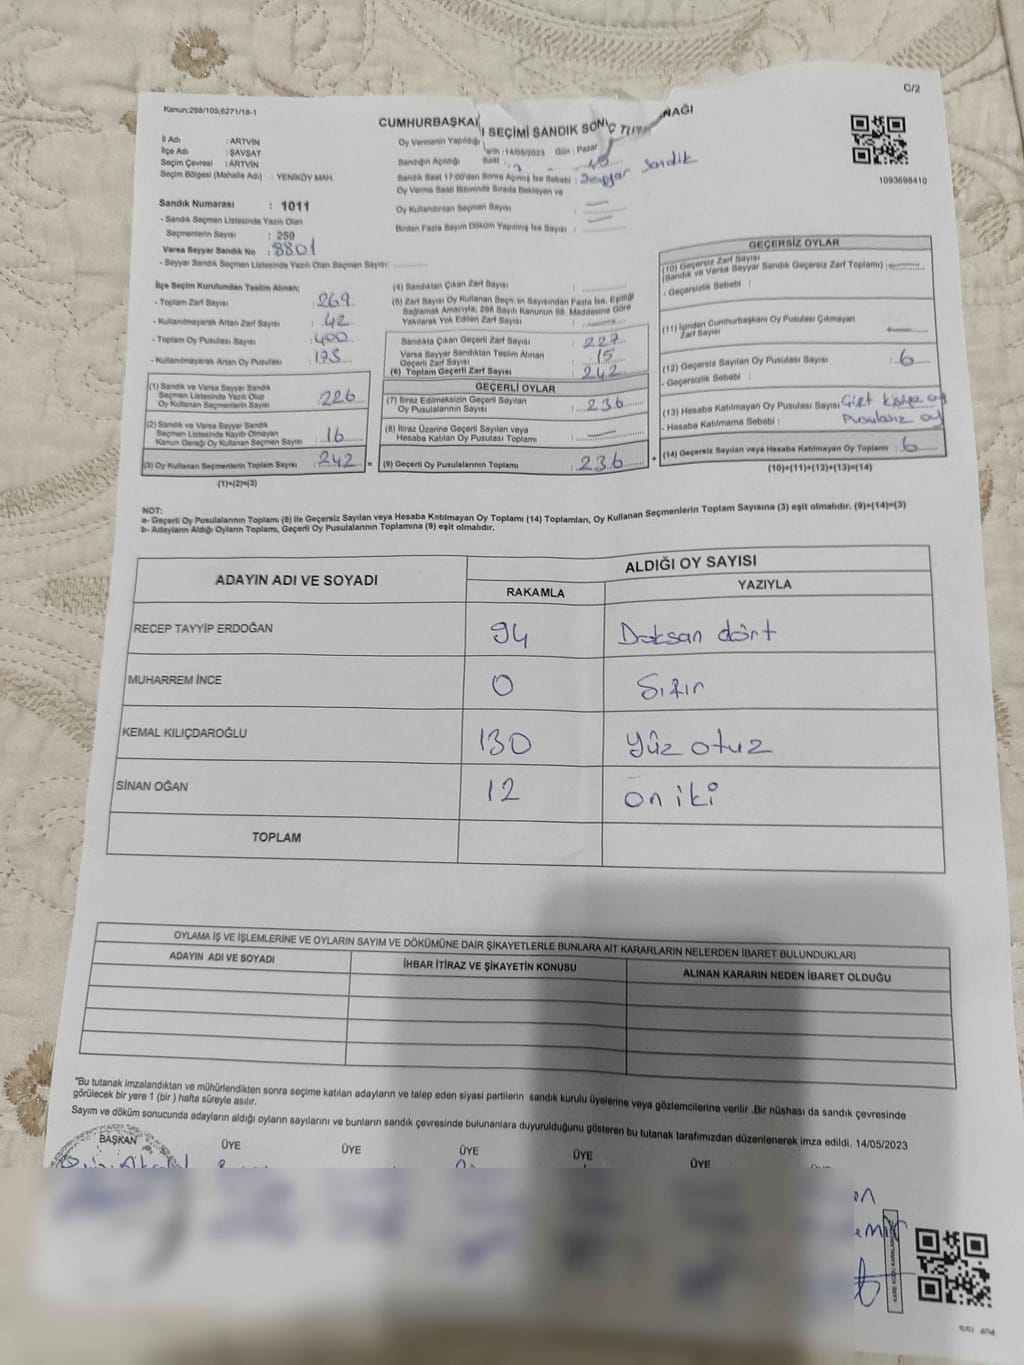 Kanun;298/105,6271/18-1
C/2
CUMHURBAŞKA I SEÇİMİ SANDIK SONUÇ TUT NAĞI
İl Adı : ARTVİN
İlçe Adı : ŞAVŞAT
Seçim Çevresi : ARTVİN
Seçim Bölgesi (Mahalle Adı) : YENİKÖY MAH.
Oy Vermenin Yapıldığı Tarih :14/05/2023 Gün : Pazar
Sandığın Açıldığı Saat :
Sandık Saat 17:00'den Sonra Açılmış İse Sebebi : Sandık
Oy Verme Saati Bitiminde Sırada Bekleyen ve
Oy Kullandırılan Seçmen Sayısı :
Birden Fazla Sayım Döküm Yapılmış İse Sayısı :
1093698410
Sandık Numarası : 1011
- Sandık Seçmen Listesinde Yazılı Olan
Seçmenlerin Sayısı : 259
Varsa Seyyar Sandık No : 8801
- Seyyar Sandık Seçmen Listesinde Yazılı Olan Seçmen Sayısı:
İlçe Seçim Kurulundan Teslim Alınan;
- Toplam Zarf Sayısı : 269
- Kullanılmayarak Artan Zarf Sayısı : 42
- Toplam Oy Pusulası Sayısı : 400
- Kullanılmayarak Artan Oy Pusulası :
(1) Sandık ve Varsa Seyyar Sandık
Seçmen Listesinde Yazılı Olup
Oy Kullanan Seçmenlerin Sayısı : 226
(2) Sandık ve Varsa Seyyar Sandık
Seçmen Listesinde Kayıtlı Olmayan
Kanun Gereği Oy Kullanan Seçmen Sayısı : 16
(3) Oy Kullanan Seçmenlerin Toplam Sayısı : 242
(1)+(2)=(3)
(4) Sandıktan Çıkan Zarf Sayısı :
(5) Zarf Sayısı Oy Kullanan Seçmen Sayısından Fazla İse, Eşitliği
Sağlamak Amacıyla; 298 Sayılı Kanunun 98. Maddesine Göre
Yakılarak Yok Edilen Zarf Sayısı :
Sandıkta Çıkan Geçerli Zarf Sayısı : 227
Varsa Seyyar Sandıktan Teslim Alınan
Geçerli Zarf Sayısı : 15
(6) Toplam Geçerli Zarf Sayısı : 242
GEÇERLİ OYLAR
(7) İtiraz Edilmeksizin Geçerli Sayılan
Oy Pusulalarının Sayısı : 236
(8) İtiraz Üzerine Geçerli Sayılan veya
Hesaba Katılan Oy Pusulası Toplamı :
= (9) Geçerli Oy Pusulalarının Toplamı : 236
GEÇERSİZ OYLAR
(10) Geçersiz Zarf Sayısı
(Sandık ve Varsa Seyyar Sandık Geçersiz Zarf Toplamı) :
- Geçersizlik Sebebi :
(11) İçinden Cumhurbaşkanı Oy Pusulası Çıkmayan
Zarf Sayısı :
(12) Geçersiz Sayılan Oy Pusulası Sayısı : 6
- Geçersizlik Sebebi :
(13) Hesaba Katılmayan Oy Pusulası Sayısı : Çift oy
- Hesaba Katılmama Sebebi : Pusulasız oy
+ (14) Geçersiz Sayılan veya Hesaba Katılmayan Oy Toplamı : 6
(10)+(11)+(12)+(13)=(14)
NOT:
a- Geçerli Oy Pusulalarının Toplamı (9) ile Geçersiz Sayılan veya Hesaba Katılmayan Oy Toplamı (14) Toplamları, Oy Kullanan Seçmenlerin Toplam Sayısına (3) eşit olmalıdır. (9)+(14)=(3)
b- Adayların Aldığı Oyların Toplamı, Geçerli Oy Pusulalarının Toplamına (9) eşit olmalıdır.
ADAYIN ADI VE SOYADI ALDIĞI OY SAYISI
RAKAMLA YAZIYLA
RECEP TAYYİP ERDOĞAN 94 Doksan dört
MUHARREM İNCE 0 Sıfır
KEMAL KILIÇDAROĞLU 130 Yüz otuz
SİNAN OĞAN 12 on iki
TOPLAM
OYLAMA İŞ VE İŞLEMLERİNE VE OYLARIN SAYIM VE DÖKÜMÜNE DAİR ŞİKAYETLERLE BUNLARA AİT KARARLARIN NELERDEN İBARET BULUNDUKLARI
ADAYIN ADI VE SOYADI İHBAR İTİRAZ VE ŞİKAYETİN KONUSU ALINAN KARARIN NEDEN İBARET OLDUĞU
"Bu tutanak imzalandıktan ve mühürlendikten sonra seçime katılan adayların ve talep eden siyasi partilerin sandık kurulu üyelerine veya gözlemcilerine verilir .Bir nüshası da sandık çevresinde
görülecek bir yere 1 (bir ) hafta süreyle asılır.
Sayım ve döküm sonucunda adayların aldığı oyların sayılarını ve bunların sandık çevresinde bulunanlara duyurulduğunu gösteren bu tutanak tarafımızdan düzenlenerek imza edildi. 14/05/2023
BAŞKAN ÜYE ÜYE ÜYE ÜYE ÜYE